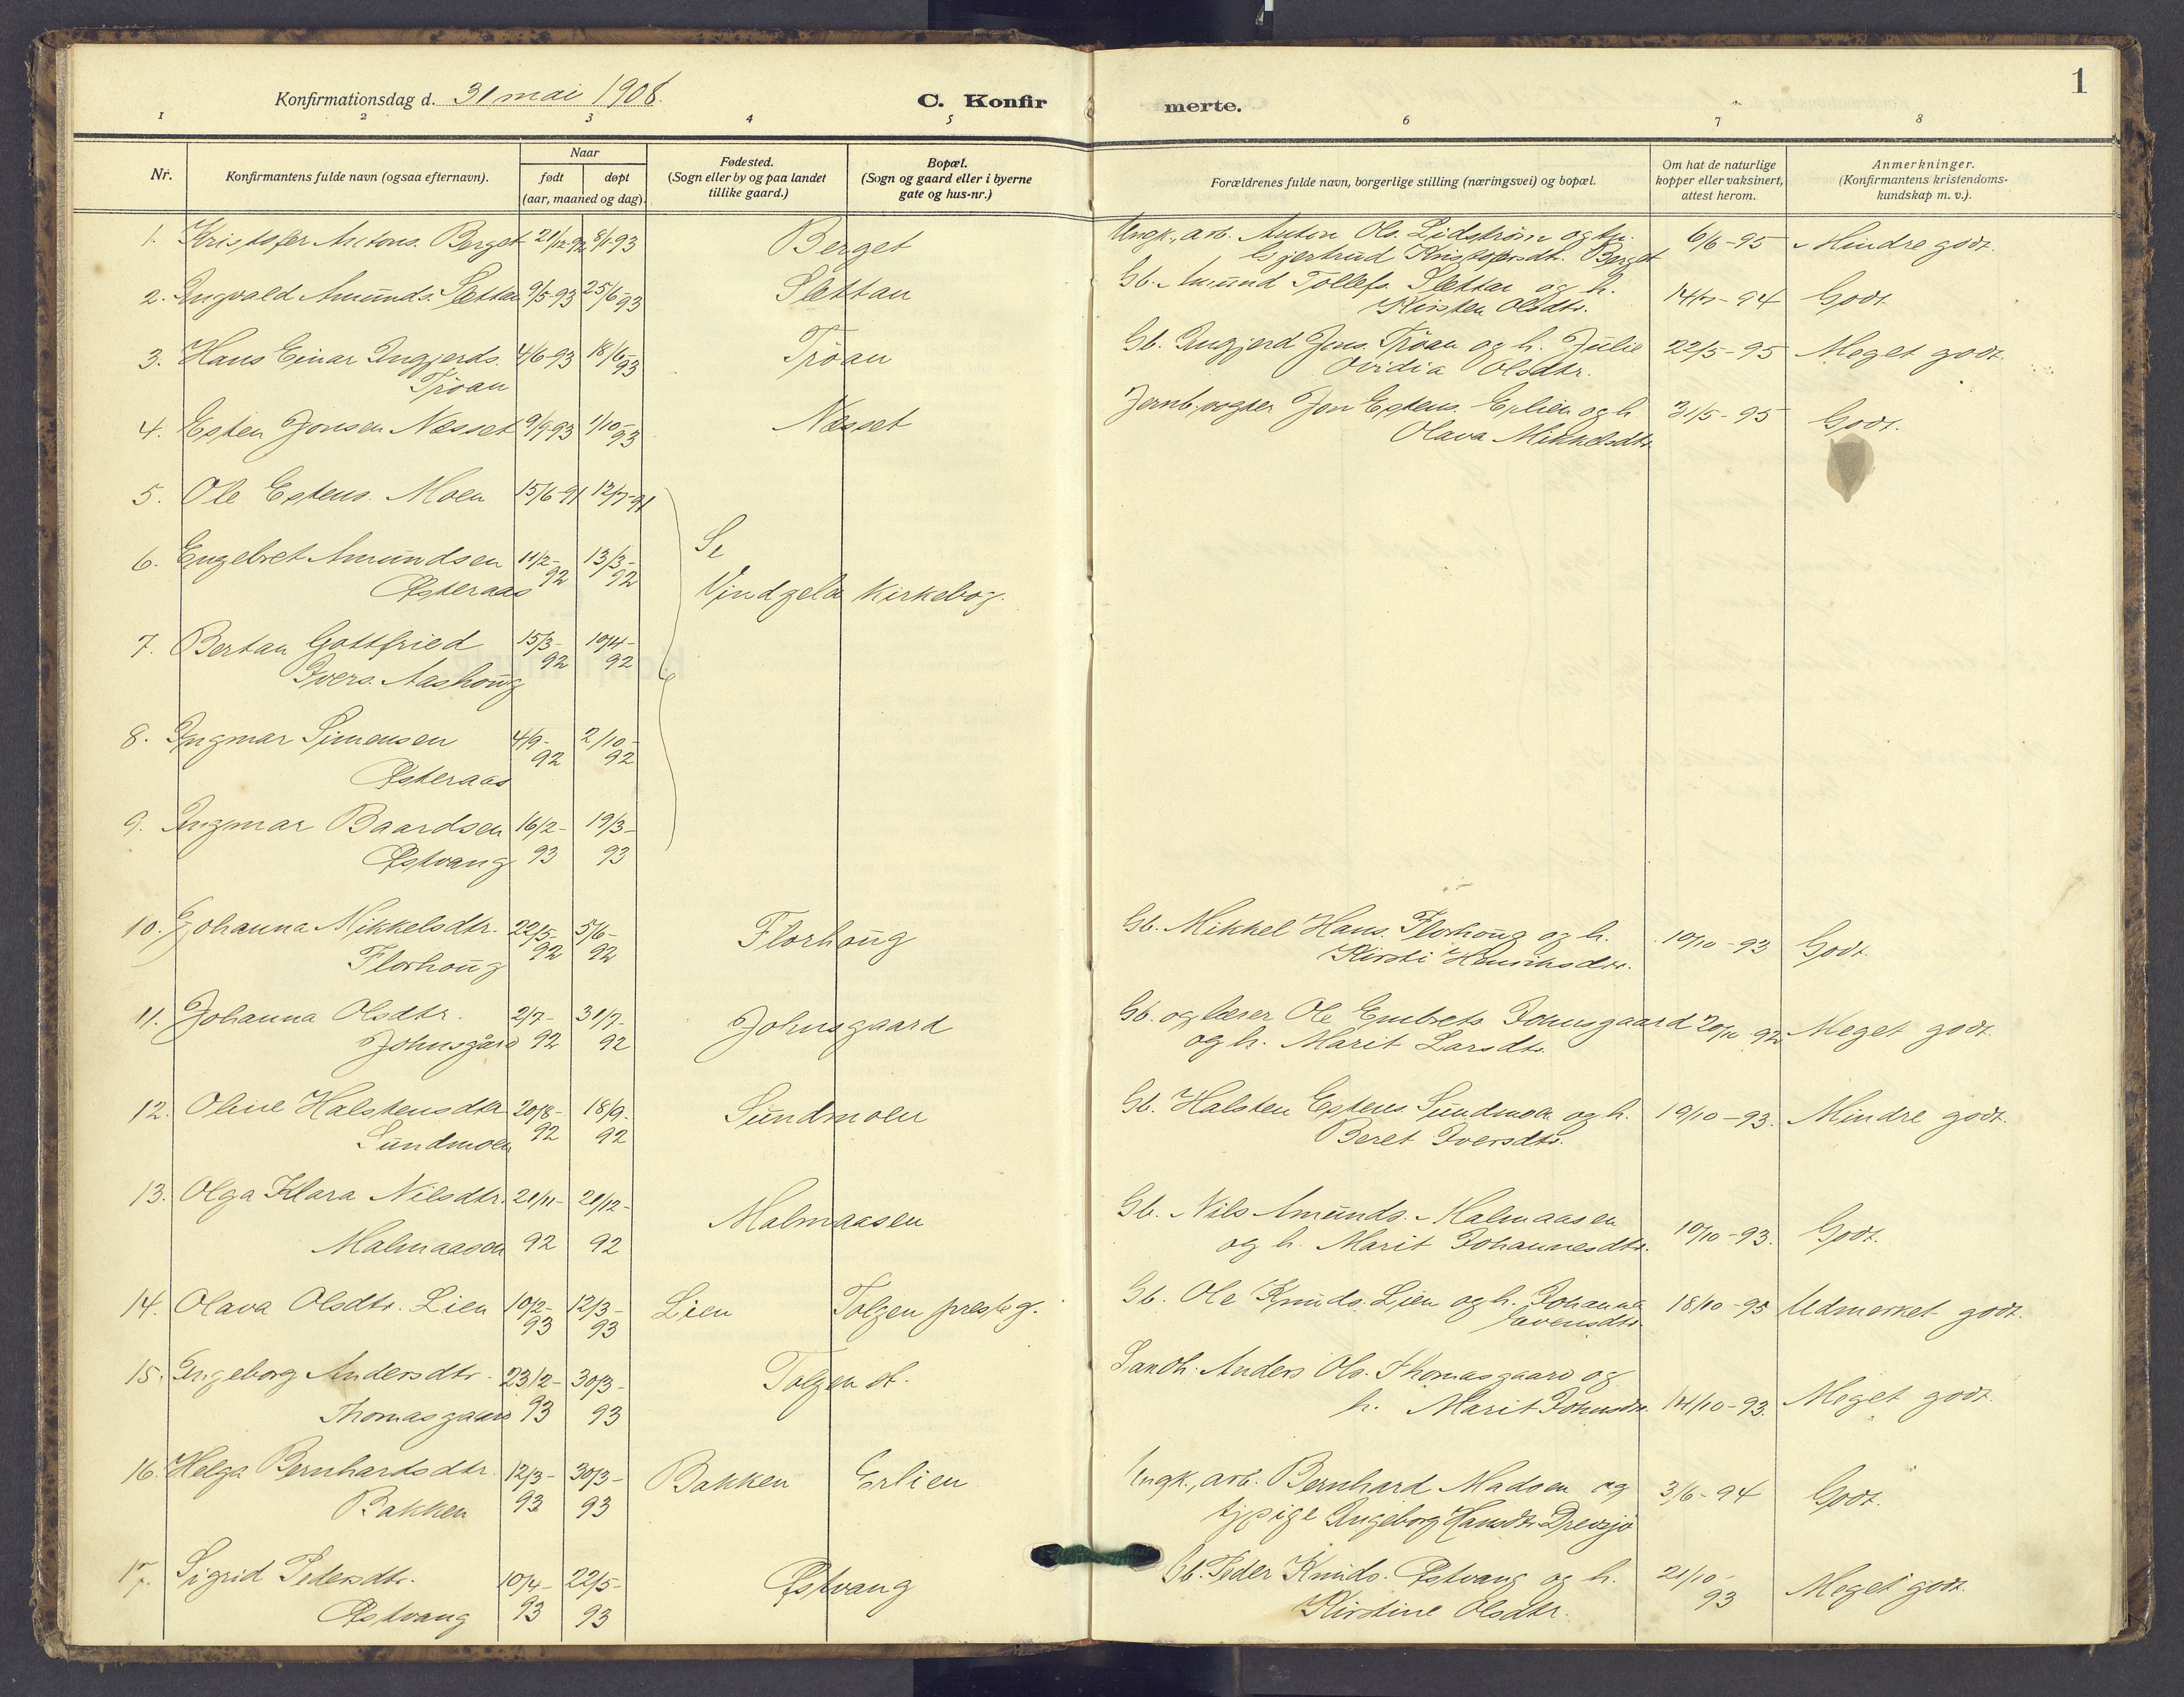 Konfirmationsdag d. 31 mai 1908.
C. Konfir
merte.
1
1 2 3 4 5 6 7 8
Nr.
Konfirmantens fulde navn (ogsaa efternavn).
Naar
født døpt
(aar, maaned og dag).
Fødested.
(Sogn eller by og paa landet
tillike gaard.)
Bopæl.
(Sogn og gaard eller i byerne
gate og hus-nr.)
Forældrenes fulde navn, borgerlige stilling (næringsvei) og bopæl.
Om hat de naturlige
kopper eller vaksinert,
attest herom.
Anmerkninger.
(Konfirmantens kristendoms-
kundskap m. v.).
1. Kristofer Antons. Berget 21/12-92 8/1-93 Berget Ungk., arb. Anton Ols. Lidstrøm og 6/6-95 Mindre godt.
Gjertrud Kristofersdtr. Berget
2. Ingvald Amunds. Slettan 9/5-93 25/6-93 Slettan Gb. Amund Tollefs. Slettan og h. 14/7-94 Godt.
Kirsten Olsdtr.
3. Hans Einar Ingjerds. 4/6-93 18/6-93 Trøan Gb. Ingjerd Jons. Trøan og h. Julie 22/5-95 Meget godt.
Trøan Ovidia Olsdtr.
4. Esten Jonsen Næsset 9/9-93 1/10-93 Næsset Jernb.vogter Jon Estens. Erlien og h. 31/5-95 Godt.
Olava Mikkelsdtr.
5. Ole Estens. Moen 15/6-91 12/7-91
Se
6. Engebret Amundsen 11/2-92 13/3-92
Østeraas Vindgelen Kirkebog.
7. Bertan Gottfried 15/3-92 10/4-92
Ivers. Aashoug
8. Ingmar Simensen 4/9-92 2/10-92
Østeraas
9. Ingmar Baardsen 16/2-93 19/3-93
Østvang
10. Johanna Mikkelsdtr. 22/5-92 5/6-92 Florhoug Gb. Mikkel Hans. Florhoug og h. 10/10-93 Godt.
Florhoug Kirsti Henriksdtr.
11. Johanna Olsdtr. 2/7-92 31/7-92 Johnsgaard Gb. og læser Ole Embrets Johnsgaard Meget godt.
Johnsgård og h. Marit Larsdtr.
12. Oline Halstensdtr 20/8-92 18/9-92 Sundmoen Gb. Halsten Estens. Sundmoen og h. 19/10-93. Mindre godt.
Sundmoen Beret Iversdtr.
13. Olga Klara Nilsdtr. 21/11-92 21/12-92 Malmaasen Gb. Nils Amunds. Malmaasen 10/10-93. Godt.
Malmaasen og h. Marit Johannesdtr.
14. Olava Olsdtr. Lien 10/2-93 12/3-93 Lien Tolgen presteg. Gb. Ole Knuds. Lien og h. Johanna 18/10-95 Udmerket godt.
Svensdtr.
15. Ingeborg Andersdtr. 23/2-93 30/3-93 Tolgen st. Landh. Anders Ols. Thomasgaard og 14/10-93. Meget godt.
Thomasgaard h. Marit Johnsdtr.
16. Helga Bernhardsdtr. 12/3-93 30/3-93 Bakken Erlien Ungk., arb. Bernhard Madsen og 3/6-94 Godt.
Bakken tj.pige Ingeborg Hansdtr. Drevsjø
17. Sigrid Pedersdtr. 10/4-93 22/5-93 Østvang Gb. Peder Knuds. Østvang og h. 21/10-93 Meget godt.
Østvang Kirstine Olsdtr.